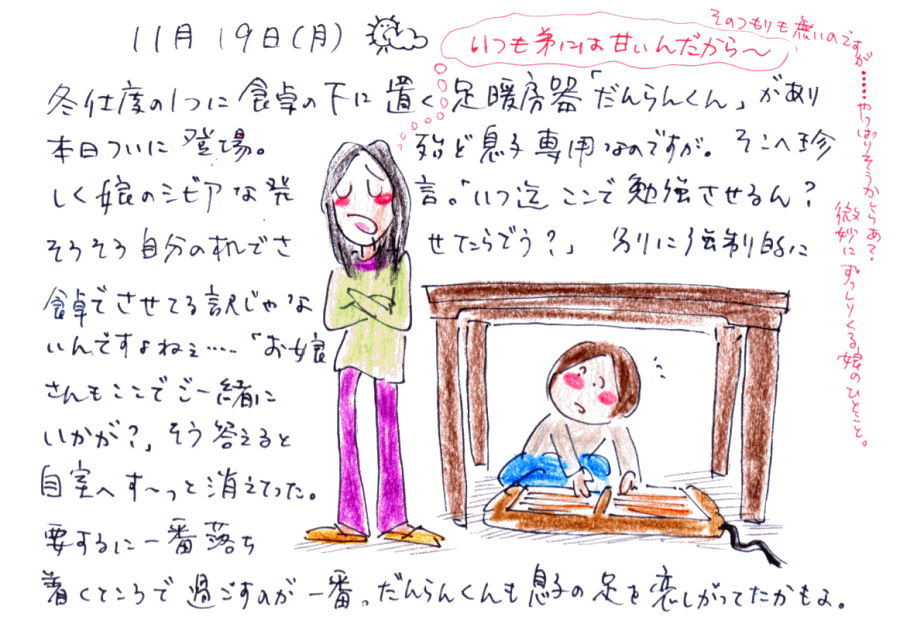 11月19日(月)
いつも弟には甘いんだから〜
そのつもりも無いのですが……やっぱりそうかしらあ?
微妙にずっしりくる娘のひとこと。
冬仕度の1つに食卓の下に置く足暖房器「だんらんくん」があり
本日ついに登場。殆ど息子専用なのですが。そこへ珍
しく娘のシビアな発言。「いつ迄ここで勉強させるん?
そろそろ自分の机でさせたらどう?」別に強制的に
食卓でさせてる訳じゃな
いんですよねぇ……「お嬢
さんもここでご一緒に
いかが?」そう答えると
自室へす〜っと消えてった。
要するに一番落ち
着くところで過ごすのが一番。だんらんくんも息子の足を恋しがってたかもよ。